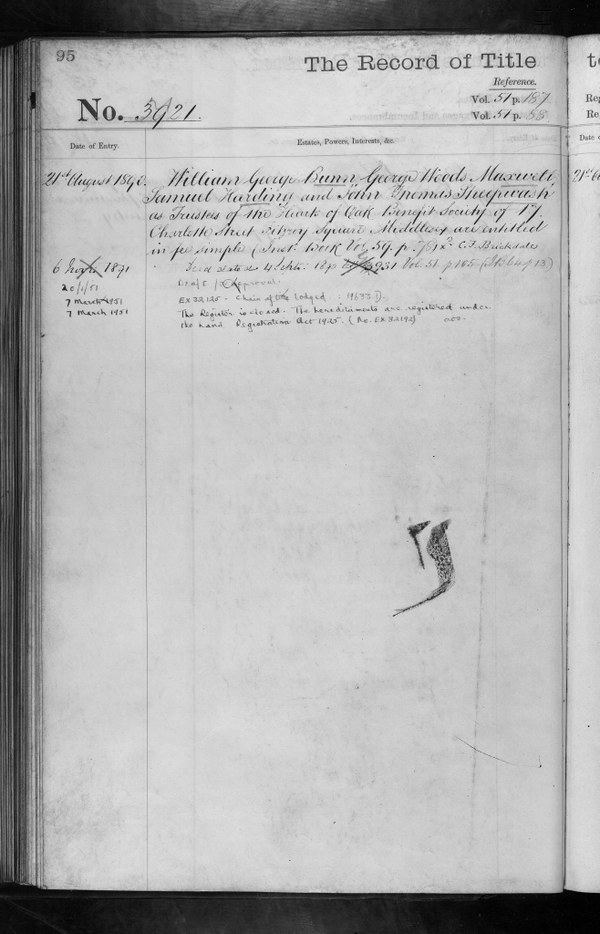 95
The Record of Title
Reference.
No. 3921.
Vol. 51 p. 187
Vol. 51 p. 88
Date of Entry.
Estates, Powers, Interests, &c.
21st August 1890. William George Bunn George Woods Maxwell,
Samuel Harding and John Thomas Sheepwash
as Trustees of the Hearts of Oak Benefit Society of 17
Charlotte Street Fitzroy Square Middlesex are entitled
in fee simple (Inst. Book Vol. 59. p. C.F. Brickdale
6 1891 Deed dated 4 Septr. 1890 3931 Vol. 51. p 185
20/2/51 Draft approval.
7 March 1951 EX 32125 - Chain of title lodged
7 March 1951 The Register is closed. The hereditaments are registered under
the Land Registration Act 1925. (No. EX 32192)
Re
Date
21st